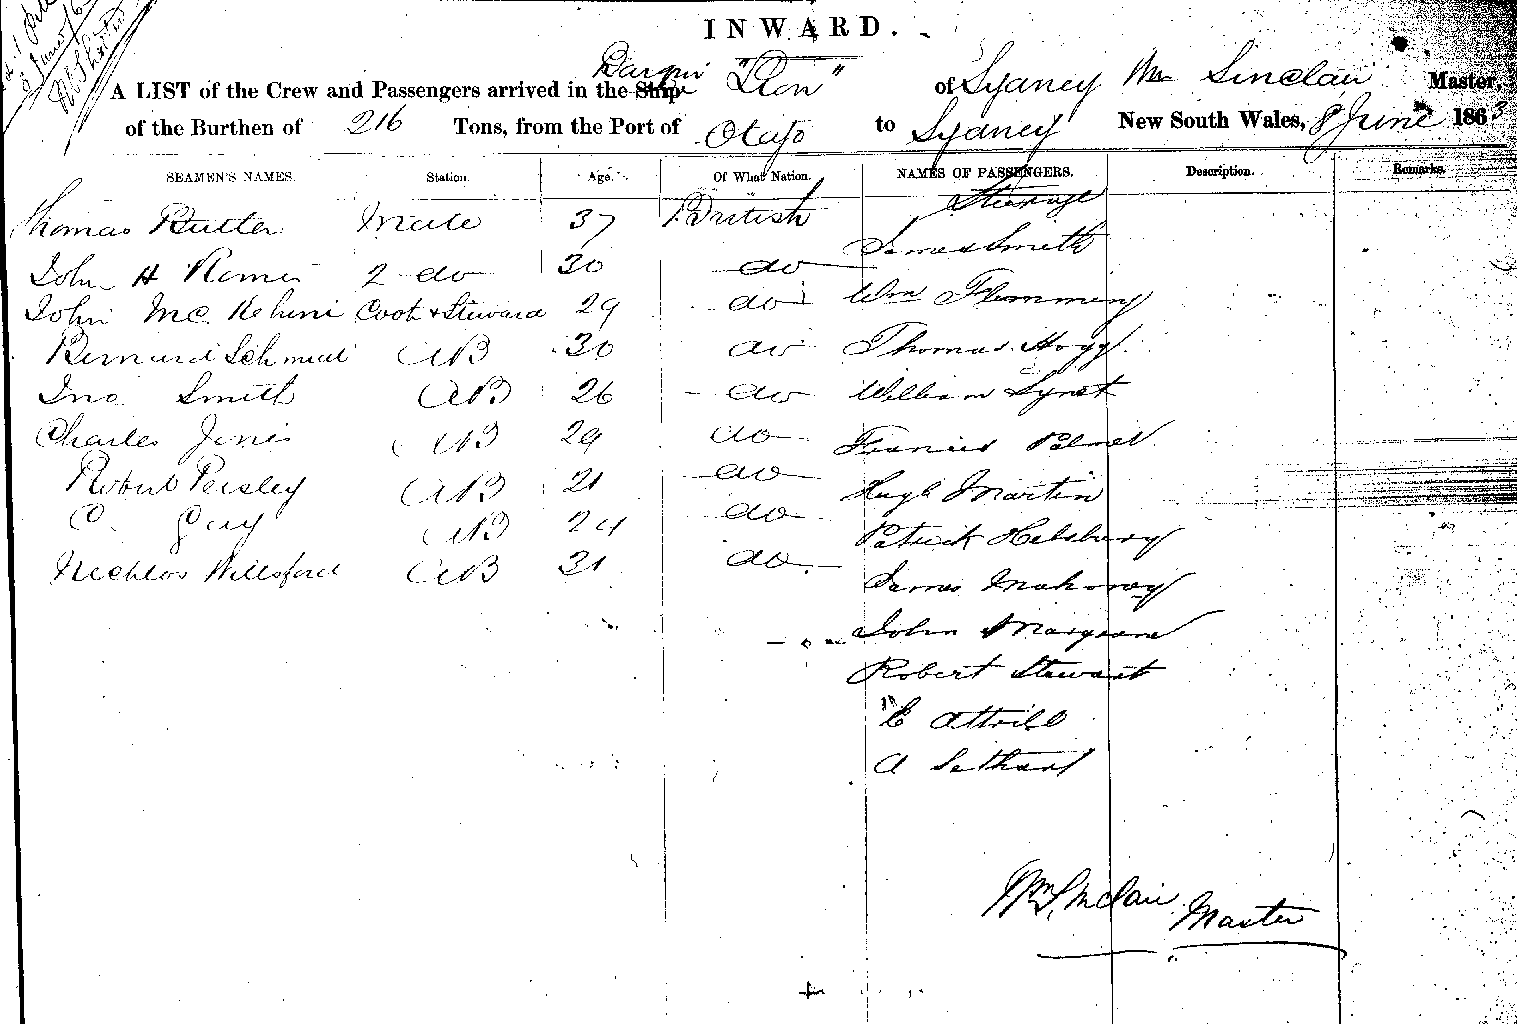 INWARD.
A LIST of the Crew and Passengers arrived in the Ship Barque "Lion" of Sydney Wm Sinclair Master,
of the Burthen of 216 Tons, from the Port of Otago to Sydney New South Wales, 8 June 1863
SEAMEN'S NAMES. Station. Age. Of What Nation. NAMES OF PASSENGERS. Description. Remarks.
Steerage
Thomas Butler Mate 37 British
James Smith
John H 2 do 30 do
John Mc Cook & Steward 29 do Wm Flemming
Bernard Schmidt AB 30 do Thomas Hogg
Jno Smith AB 26 do William
Charles Jones AB 29 do Francis
Robert Peisley AB 21 do Hugh Martin
C. Guy AB 24 do Patrick
AB 31 do James Mahoney
John
Robert Stewart
C Attrill
A
Wm Sinclair Master